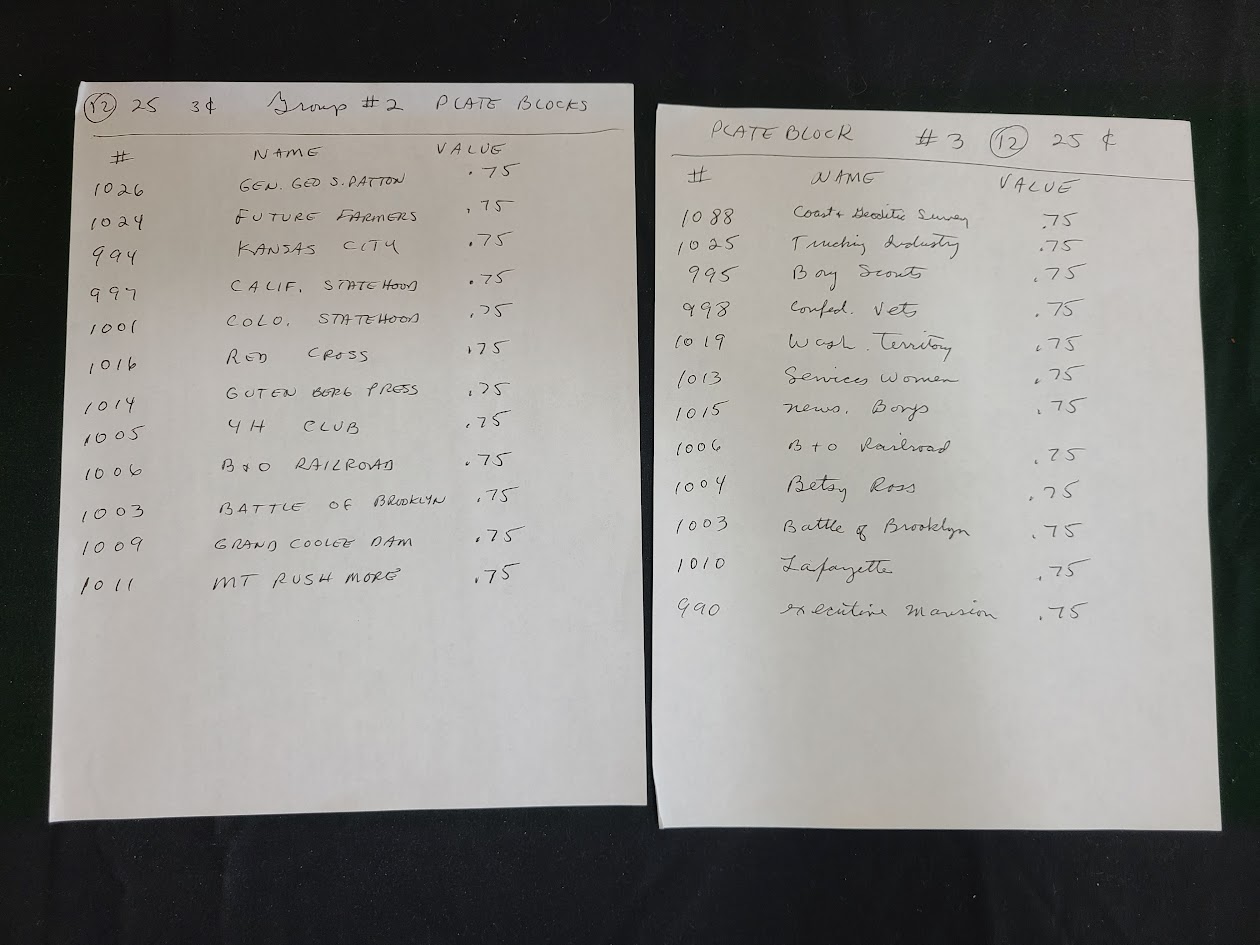 12 25 3¢ Group #2 PLATE BLOCKS
# NAME VALUE
1026 GEN. GEO S. PATTON .75
1024 FUTURE FARMERS .75
994 KANSAS CITY .75
997 CALIF. STATEHOOD .75
1001 COLO. STATEHOOD .75
1016 RED CROSS .75
1014 GUTEN BERG PRESS .75
1005 4H CLUB .75
1006 B&O RAILROAD .75
1003 BATTLE OF BROOKLYN .75
1009 GRAND COOLEE DAM .75
1011 MT RUSH MORE .75
PLATE BLOCK #3 12 25 ¢
# NAME VALUE
1088 Coast & Geodetic Survey .75
1025 Trucking Industry .75
995 Boy Scouts .75
998 Confed. Vets .75
1019 Wash. Territory .75
1013 Services Women .75
1015 news. Boys .75
1006 B + O Railroad .75
1004 Betsy Ross .75
1003 Battle of Brooklyn .75
1010 Lafayette .75
990 executive Mansion .75